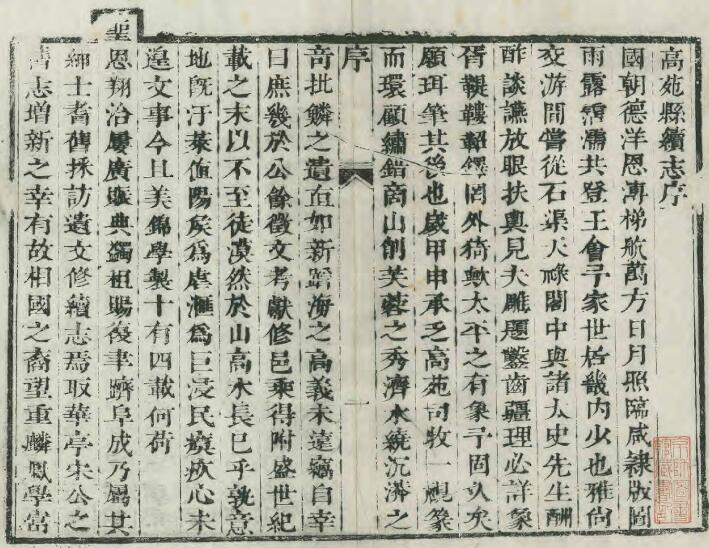 高苑縣續志序
國朝德洋恩溥梯航萬方日月照臨咸隸版圖
雨露霑濡共登王會予家世居畿內少也雅尙
交游間嘗從石渠天祿閣中與諸太史先生酬
酢談讌放眼扶輿見夫雕題鑿齒疆理必詳象
胥鞮鞻軺鐸罔外猗歟太平之有象予固久矣
願珥筆其後也歲甲申承乏高苑司牧一視篆
而環顧繡錯商山削芙蓉之秀濟水繞沉漭之
序
一
奇批鱗之遺直如新蹈海之高義未遠竊自幸
曰庶幾於公餘徵文考獻修邑乘得附盛世紀
載之末以不至徒漠然於山高水長已乎孰意
地旣汙萊値陽矦爲虐滙爲巨浸民瘼疚心未
遑文事今且美錦學製十有四載何荷
聖
恩翔洽屢廣賑典蠲租賜復聿躋阜成乃屬其
紳士耆舊採訪遺文修續志焉取華亭宋公之
舊志增新之幸有故相國之裔望重麟鳳學富